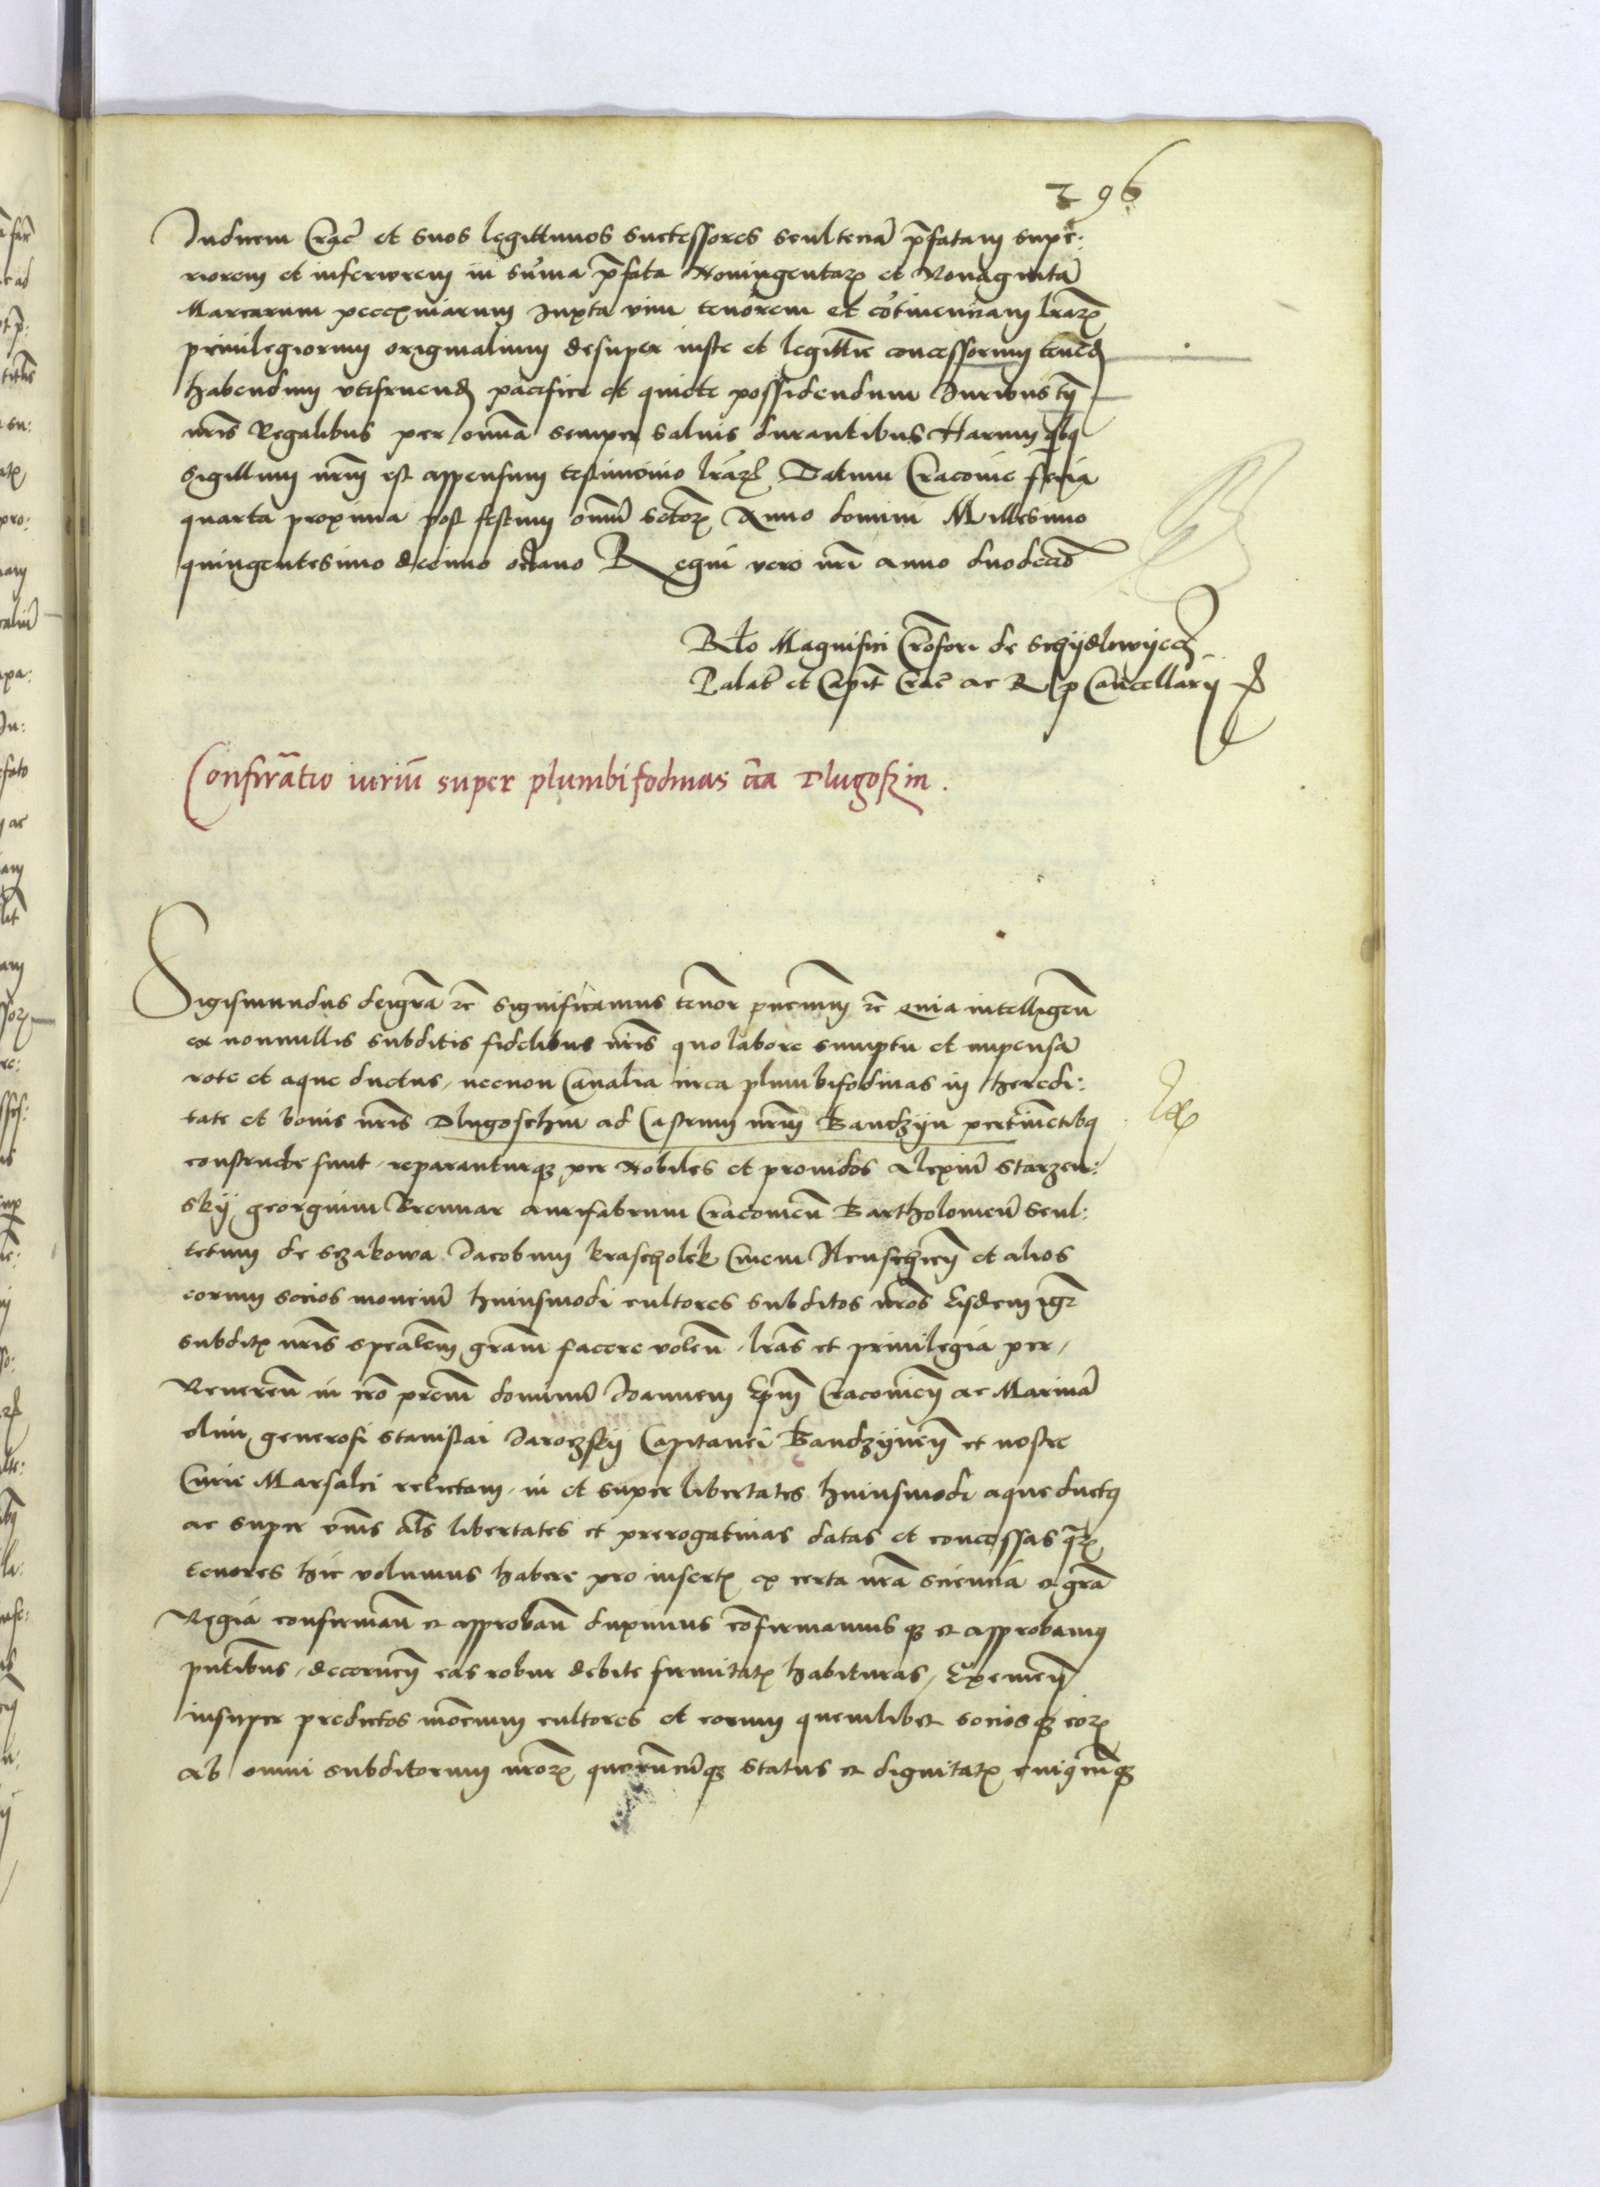 296
Judicem Crac̄ et suos legittimos successores scultecia p̄fatam supe:
riorem et inferiorem in sum̄a p̄fata Noningentaꝝ et Nonaginta
Marcarum pecc͞uniarum Juxta vim tenorem et cōtinenciam lr̄aꝝ
privilegiorum originalium desuper iuste et legittīe concessorum tenēđ
habendum vtifruenđ pacifice et quiete possidendum Juribus tn̄
nr̄is Regalibus per om̄ia semper salvis durantibus Harum qbꝫ
sigillum nr̄m est appensum testimonio lr̄aꝝ Datum Cracovie feria
quarta proxima post festum om̄iū sctōꝝ Anno domini Millesimo
quingentesimo decimo octavo Regni vero nr̄i anno duodecīo
Rl̄o Magnifici Cr̄ofori de Schÿdlowÿecz
Palat̄ et Capit̄ Crac̄ ac R p Cancellarÿ
Confirmātio iuriū super plumbifodinas cc̄a Dlugoszin.
Sigismundus dei gr̄a ꝛc̄ significamus tenor̄ pn̄cium ꝛc̄ Quia intelligen̄
ex nonnullis subditis fidelibus nr̄is quo labore sumptu et impensa
rote et aque ductus, necnon Canalia circa plumbifodinas in heredi:
tate et bonis nr̄is Dlugoschin ad Castrum nr̄m Bandzÿn pertinētibꝫ
constructe sunt, reparanturqꝫ per Nobiles et providos Alexiū Starzen:
skÿ Georgium Brennar Aurifabrum Cracovien̄ Bartholomeū scul:
tetum de Szakowa Jacobum kraszolek Civem Ilkuschien̄ et alios
eorum socios monciū huiusmodi cultores subditos nr̄os Eisdem igr̄
subditꝭ nr̄is spēalem gr̄am facere volen̄, lr̄as et privilegia per,
Reveren̄ in cr̄o pr̄em dominū Joannem Ep̄m Cracovien̄ ac Marinā
olim generosi Stanislai Jaroczskÿ Capitanei Bandzÿnen̄ et nostre
Curie Marsalci relictam, in et super libertates huiusmodi aque ductꝰ
ac super om̄s al̄s libertates et prerogativas datas et concessas qr̄ꝝ
tenores hic volumus habere pro insertꝭ ex certa nr̄a sciencia et gr̄a
Regia confirman̄ et approban̄ duximus cōfirmamus qꝫ et approbamꝰ
pn̄tibus, decernen̄ eas robur debite firmitatꝭ habituras, Eximen̄
insuper predictos mōcium cultores et eorum quemlibet socios qꝫ eoꝝ
Ab omni subditorum nr̄oꝝ quorūcūqꝫ status et dignitatꝭ cuiꝰcūqꝫ